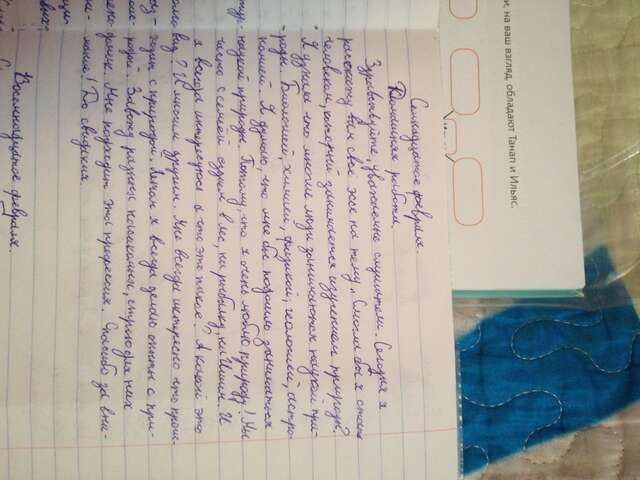 и, на ваш взгляд, обладают Танап и Ильяс.
Семнадцатое февраля.
Домашняя работа.
Здравствуйте, уважаемые слушатели. Сегодня я
расскажу вам своё эссе на тему „Смогла бы я стать
человеком, который занимается изучением природы?
Я узнала что многие люди занимаются наукой при-
роды. Биологией, химией, физикой, геологией, астро-
номией. Я думаю, что мне бы подошло заниматься
наукой природы. Потому, что я очень люблю природу! Мы
часто с семьей ездим в лес, на рыбалку, на Ишим. И
я всегда интересуюсь а что это такое? А какой это
вид? И многим другим. Мне всегда интересно что проис-
ходит с природой. Летом я всегда делаю опыты с при-
родой. Завожу разных насекомых, строю для них
домик. Мне подходит эта профессия. Спасибо за вни-
мание! До свидания.
Восемнадцатое февраля.